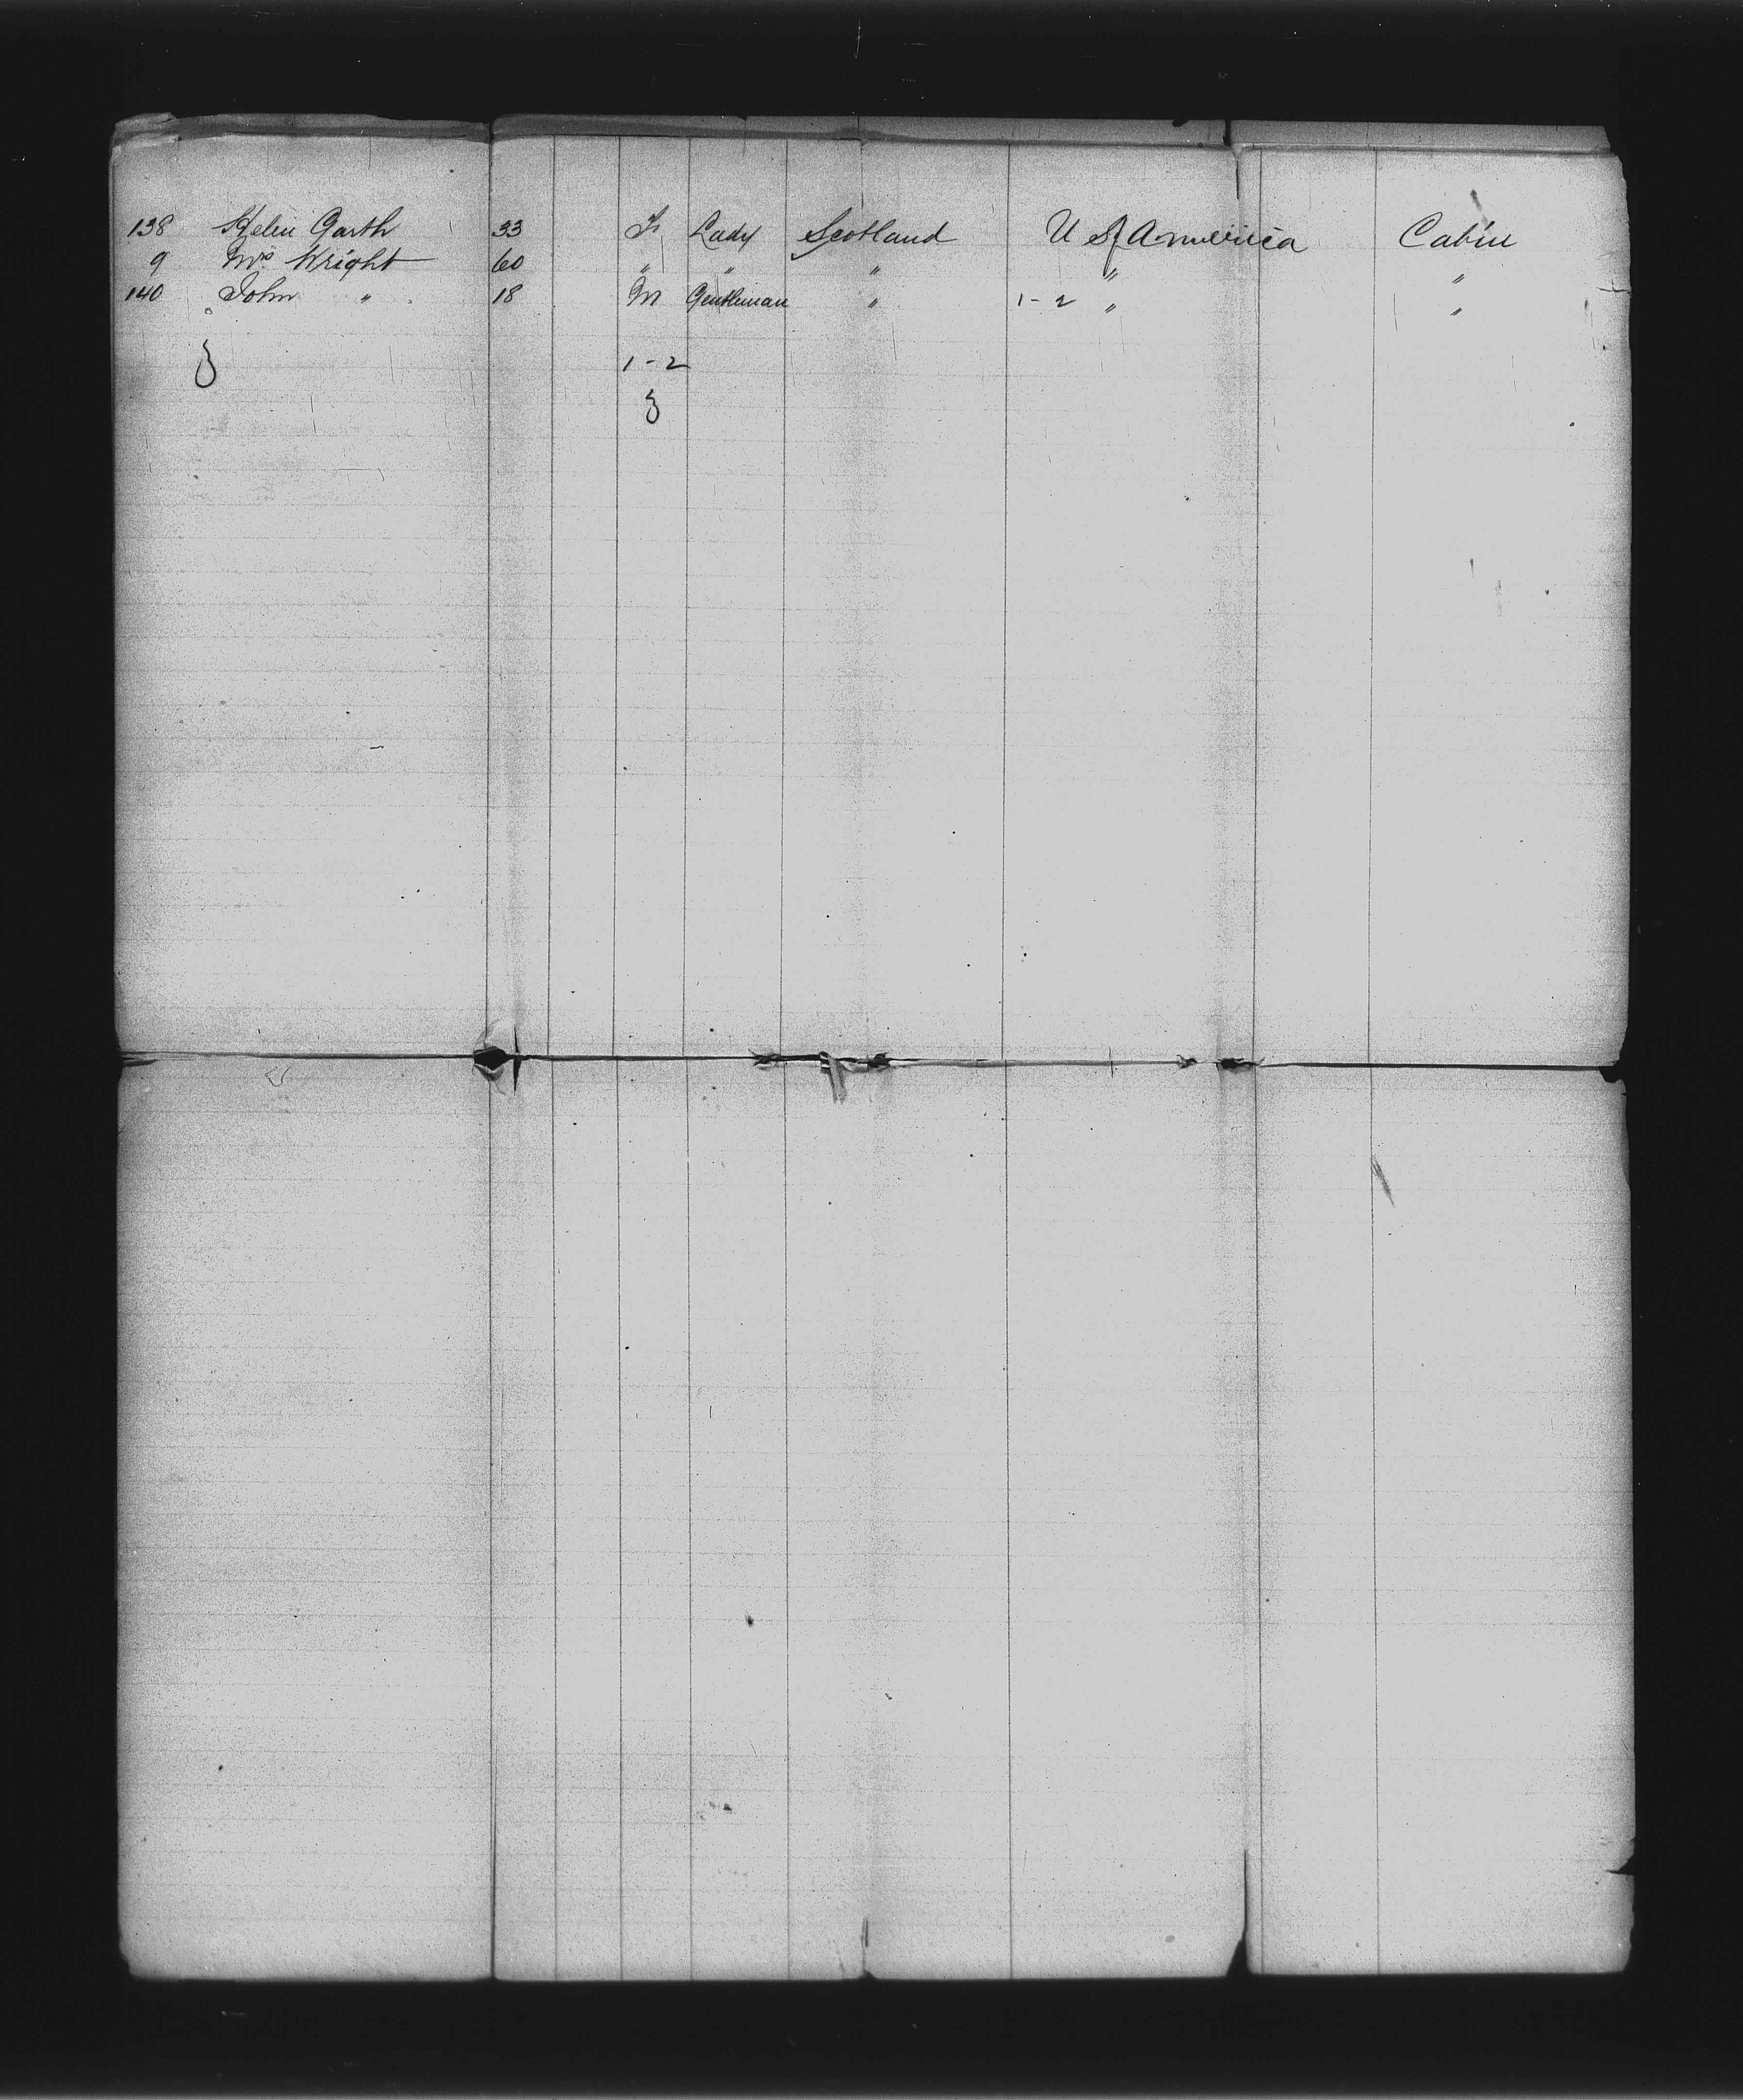 138 Helen Garth 33 F. Lady Scotland U S of America Cabin
9 Mrs Wright 60 " " " " "
140 John " 18 M Gentleman " 1-2 " "
3 1-2
3